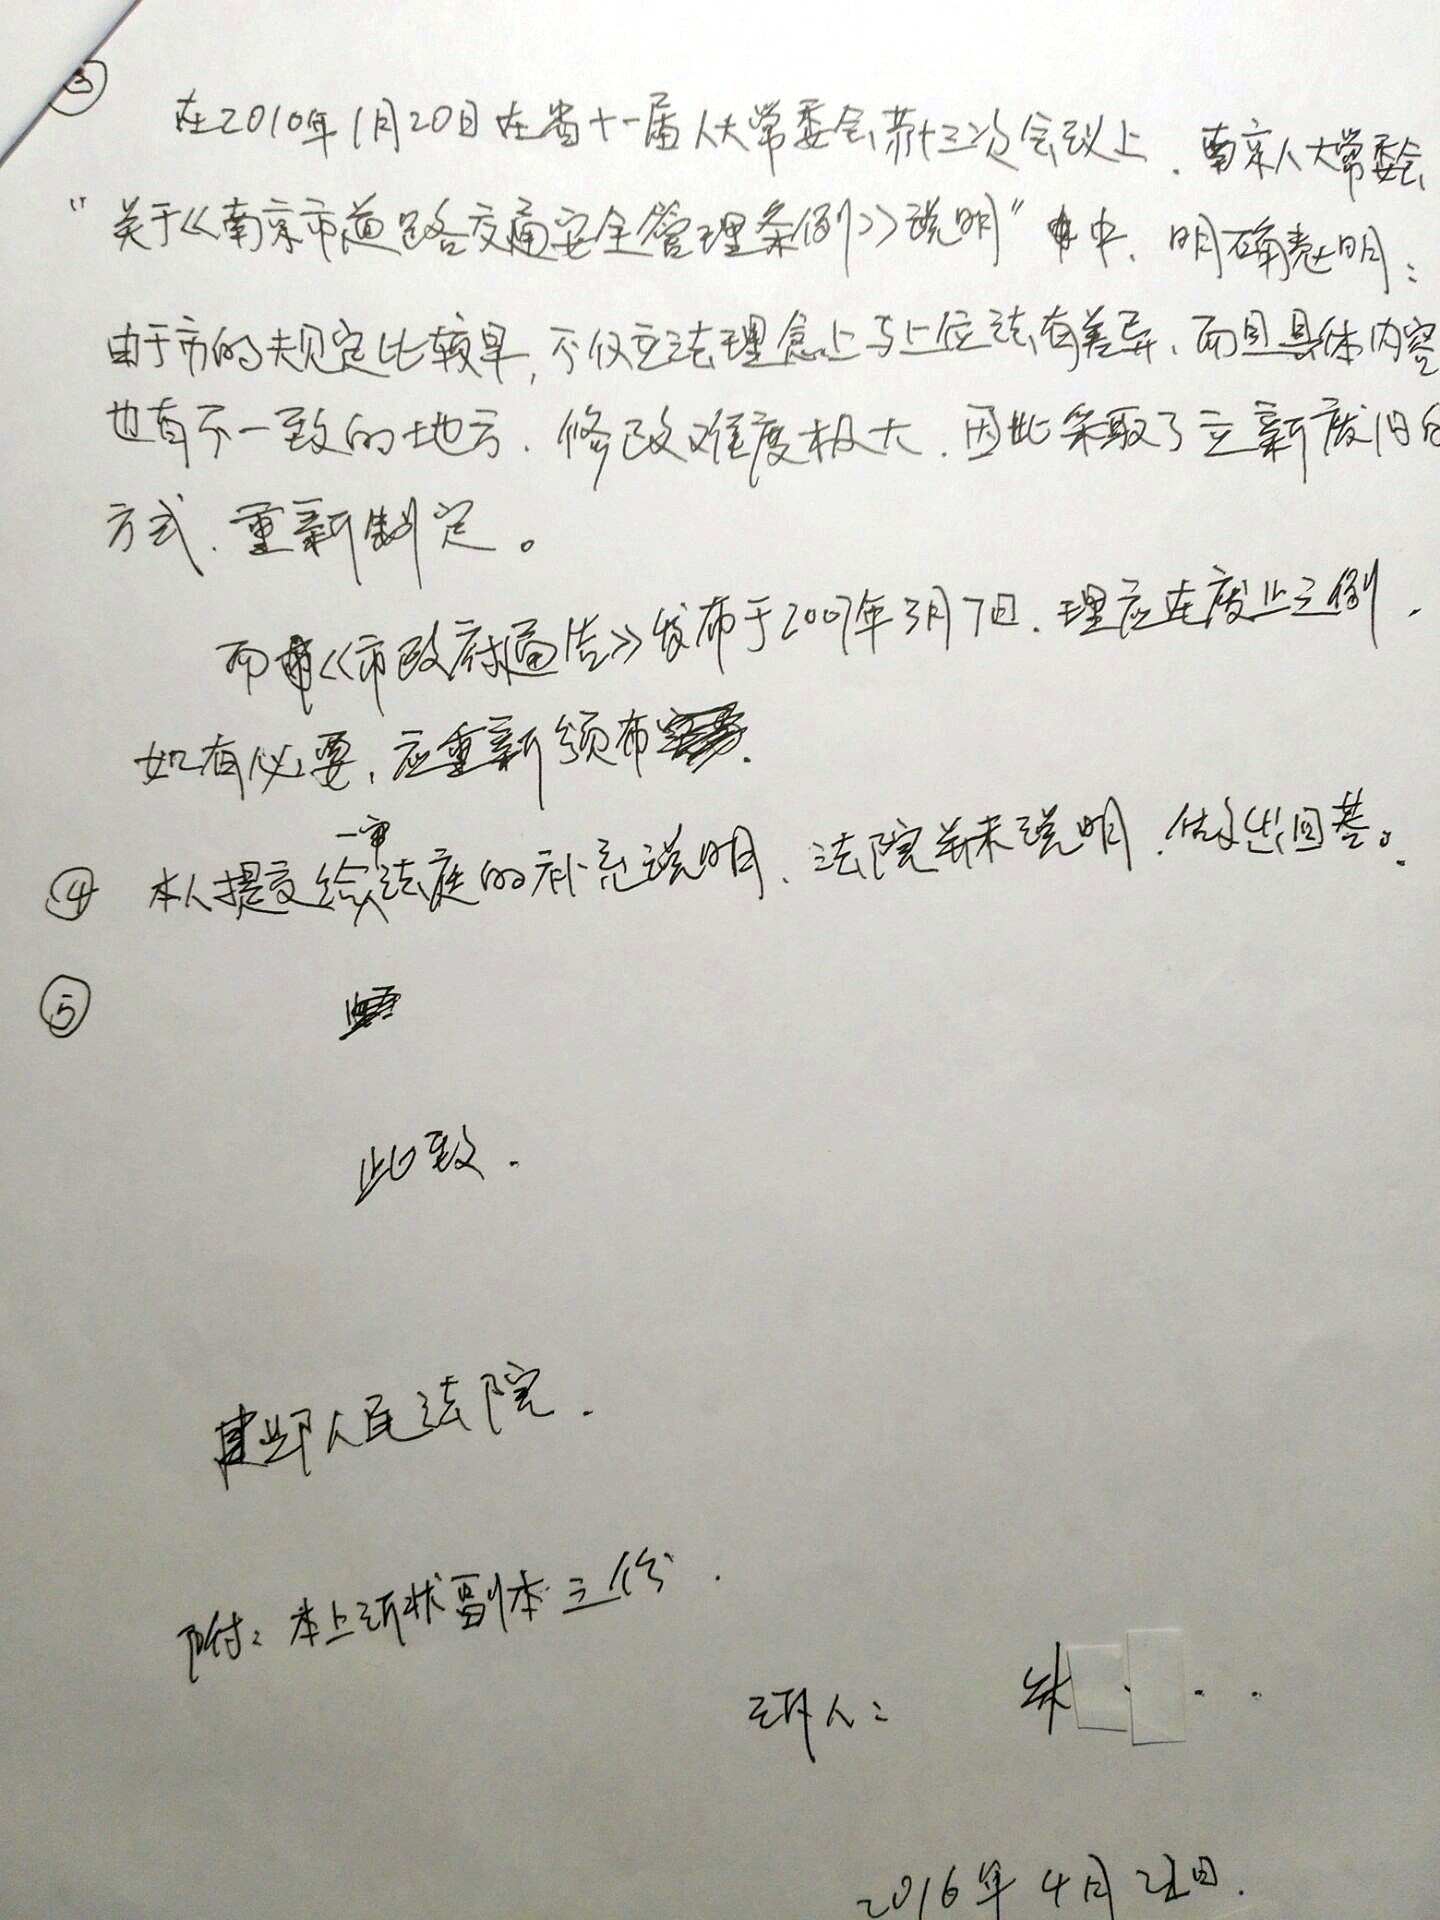 ③ 在2010年1月20日在省十一届人大常委会第十三次会议上，南京人大常委会
“关于《南京市道路交通安全管理条例》说明”中，明确表明：
由于市的规定比较早，不仅立法理念上与上位法有差异，而且具体内容
也有不一致的地方，修改难度极大，因此采取了立新废旧的
方式，重新制定。
而《市政府通告》发布于2007年3月7日，理应在废止之例，
如有必要，应重新颁布.
一审
④ 本人提交给法庭的补充说明，法院并未说明，做出回答。
⑤
此致.
建邺人民法院.
附：本上诉状副本三份.
上诉人： 朱
2016年4月 日.